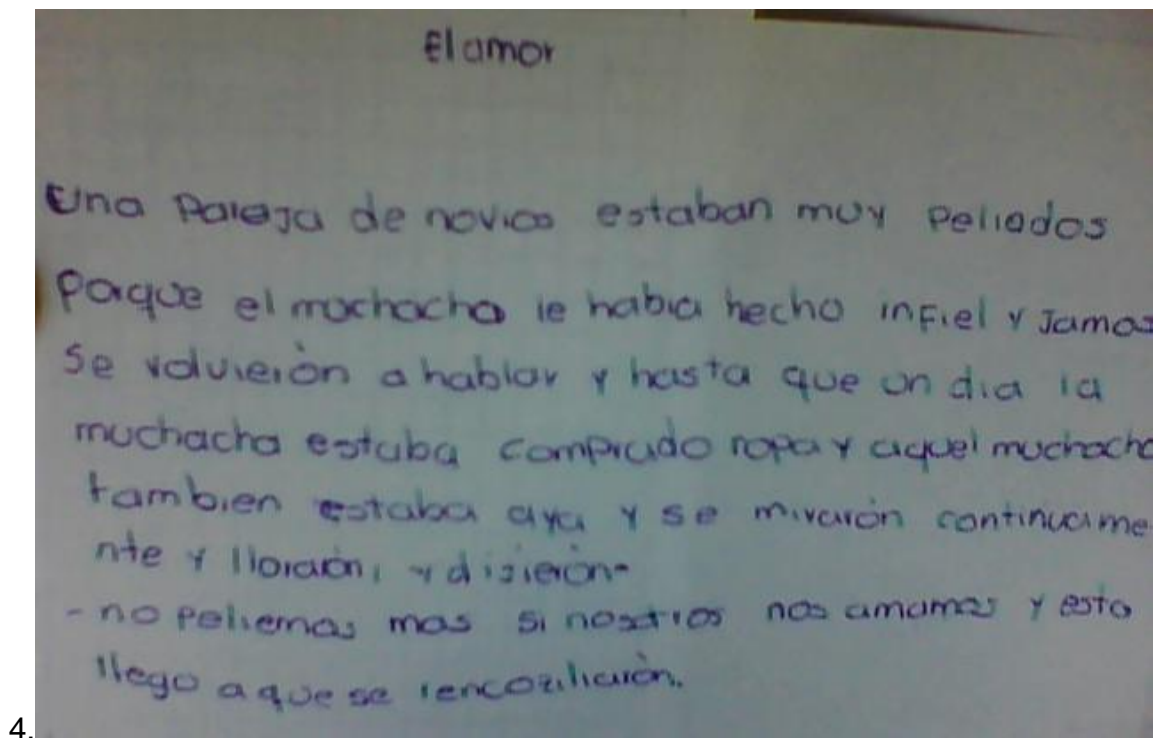 El amor
Una Pareja de novios estaban muy Peliados
porque el muchacho le habia hecho infiel y Jamas
Se volvierón a hablar y hasta que un dia la
muchacha estaba comprado ropa y aquel muchacho
tambien estaba aya y se mirarón continuame
nte y llorarón, y dizierón-
- no peliemos mas si nosotros nos amamos y esto
llego a que se rencoziliarón.
4.